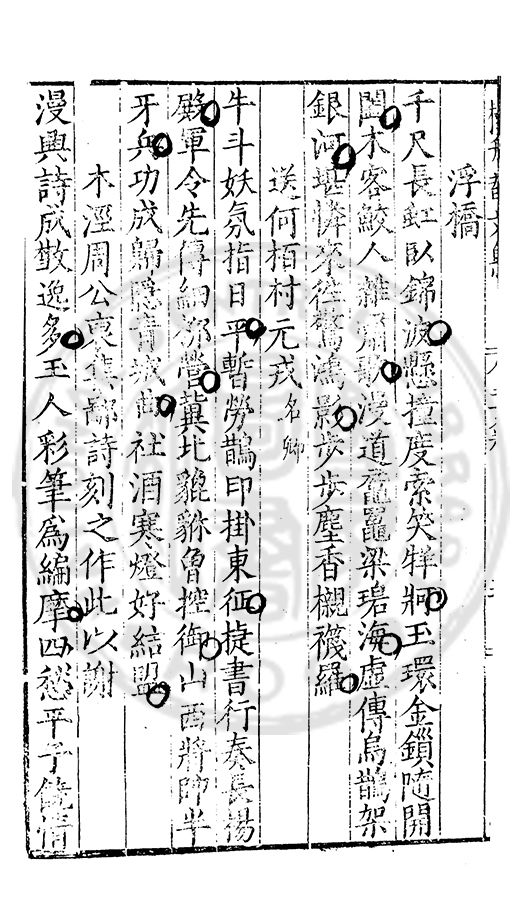 浮橋
千尺長虹臥錦波懸撞度索笑牂牁玉環金鎖隨開
闔木客鮫人雜嘯歌漫道黿鼉梁碧海虛傳烏鵲架
銀河堪憐來往驚鴻影步步塵香櫬襪羅
送何栢村元戎名卿
牛斗妖氛指日平暫勞鵲印掛東征捷書行奏長楊
殿軍令先傳細柳營冀北貔貅魯控御山西將帥半
牙兵功成歸隱青城曲社酒寒燈好結盟
木涇周公裒集鄙詩刻之作此以謝
漫興詩成散逸多玉人彩筆爲編摩四愁平子饒情